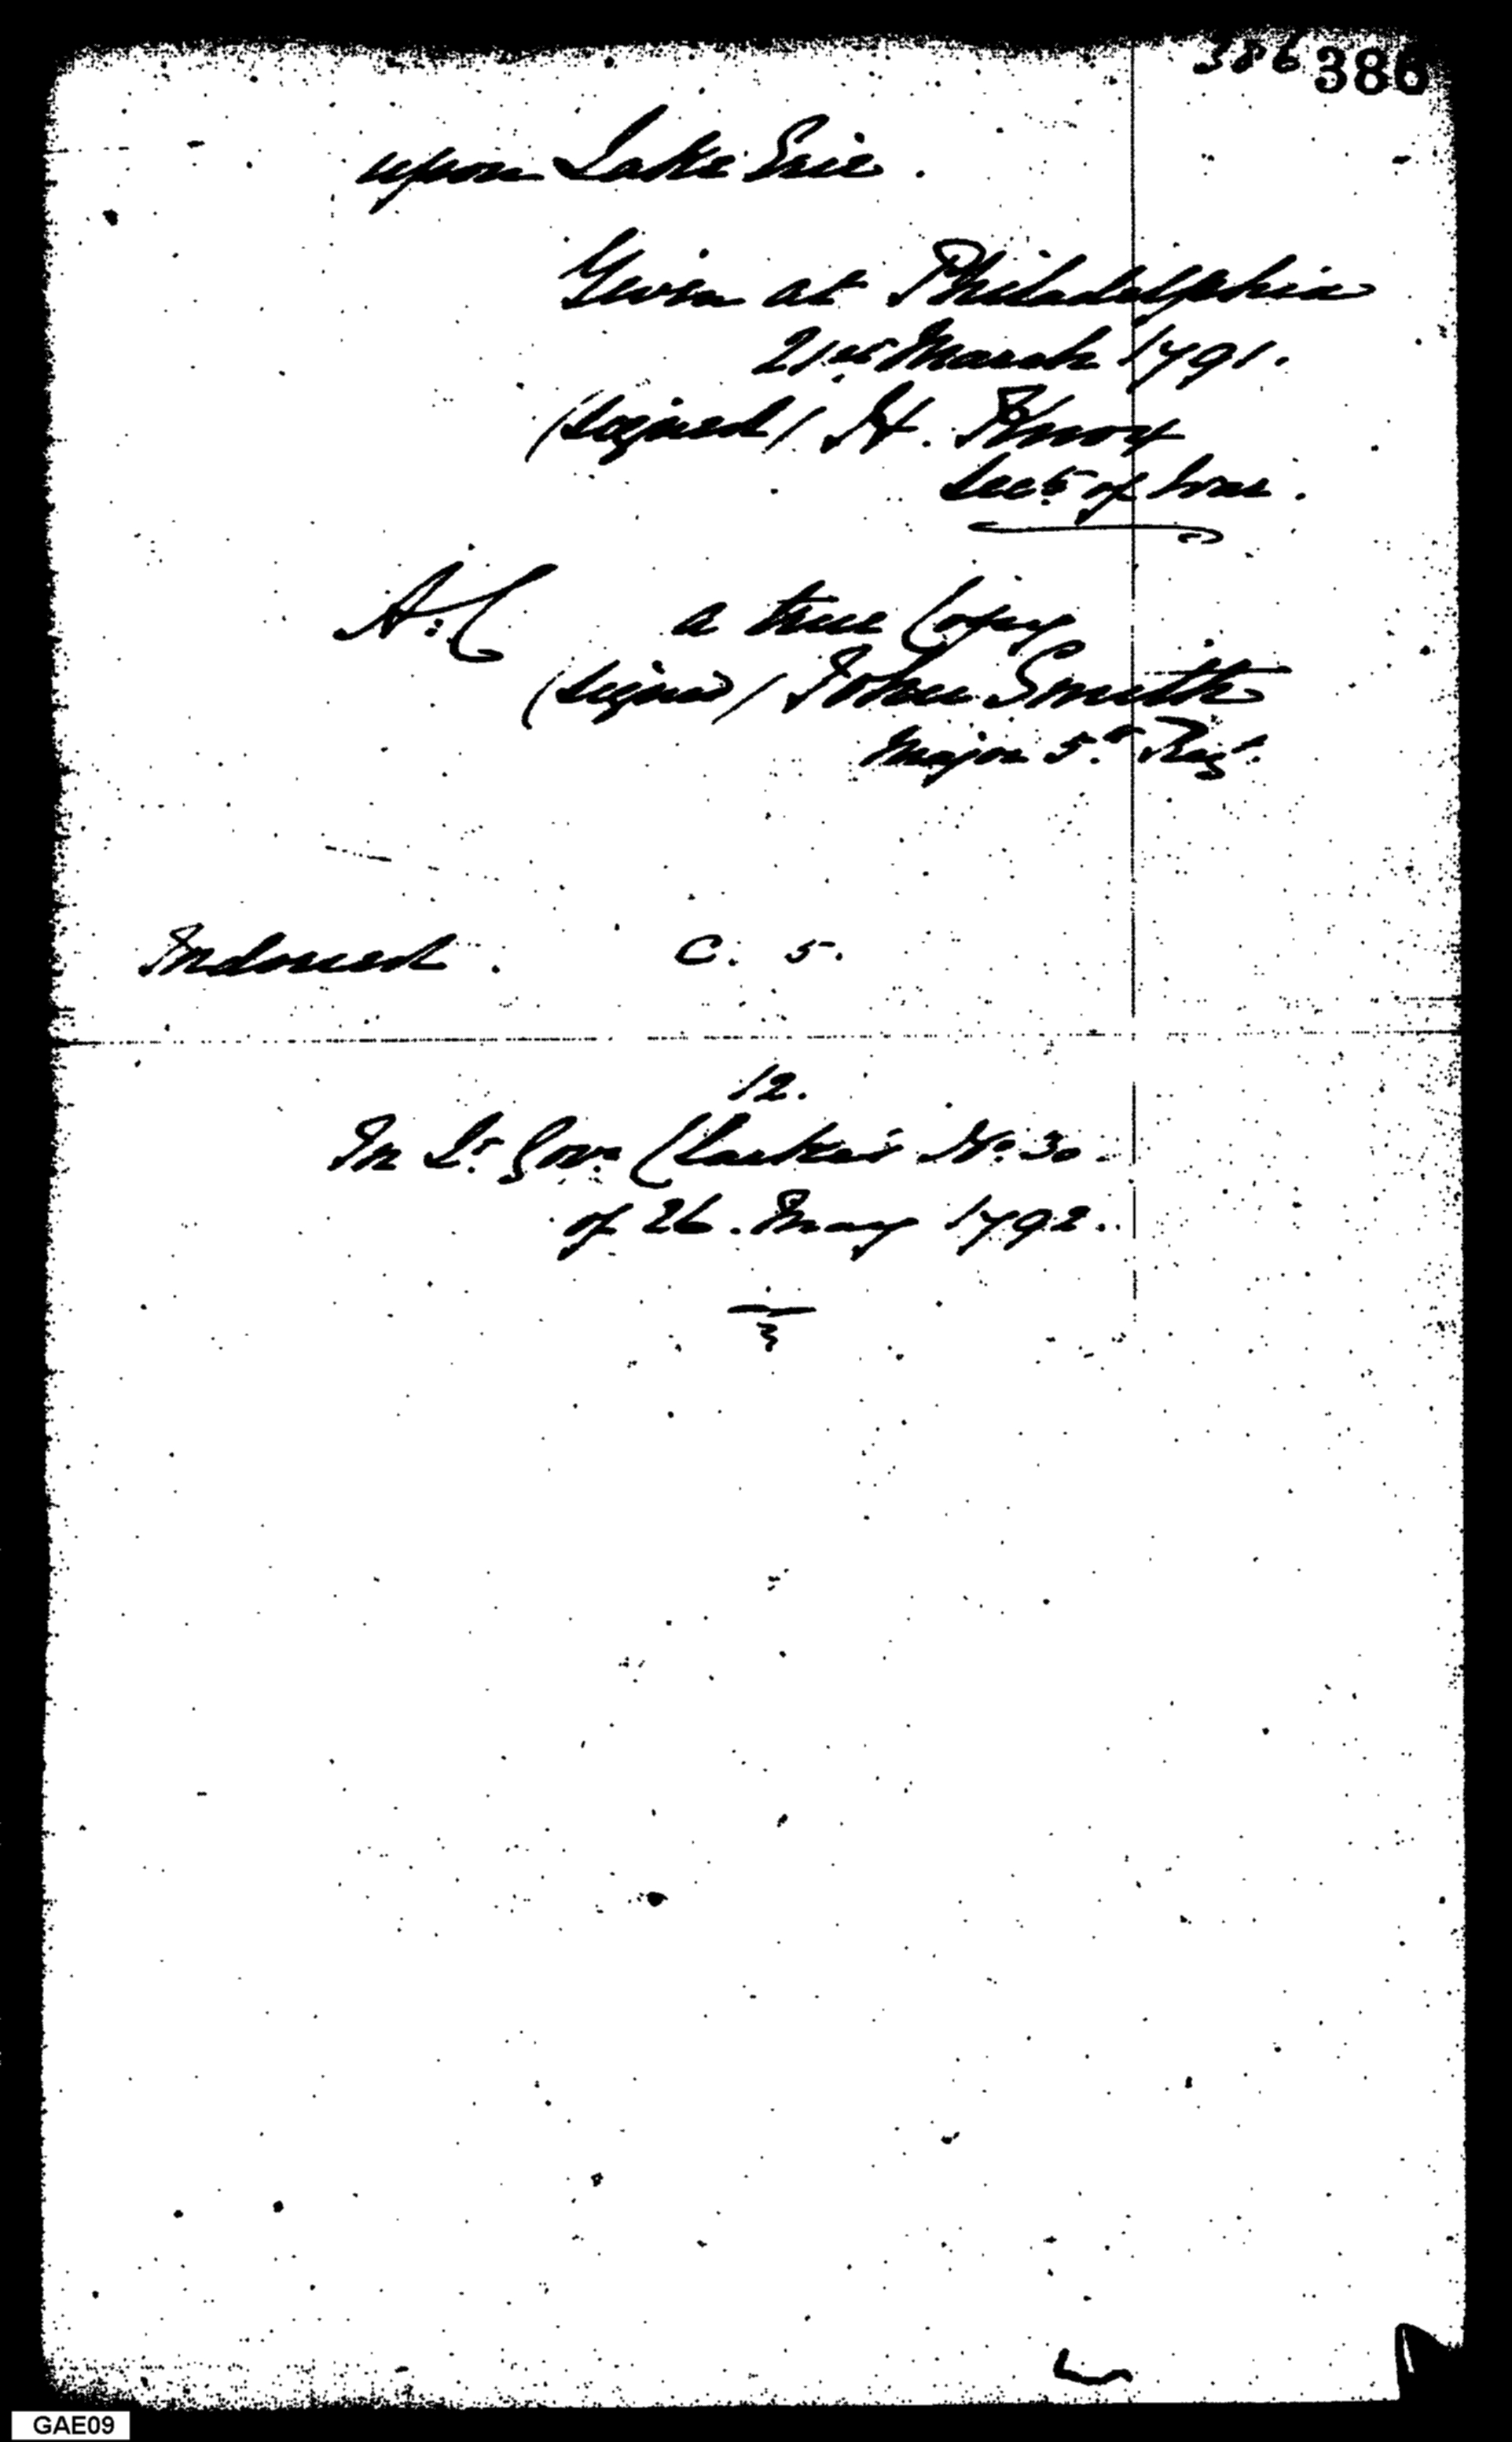 386 386
upon Lake Erie.
Given at Philadelphia
21st March 1791.
(signed) H. Knox
Secy. of War.
A:C a true Copy
(signed) John Smith
Major 5th Regt.
Indorsed. C. 5.
12.
In Lt. Govr. Clarke's No. 30
of 26. May 1792.
GAE09